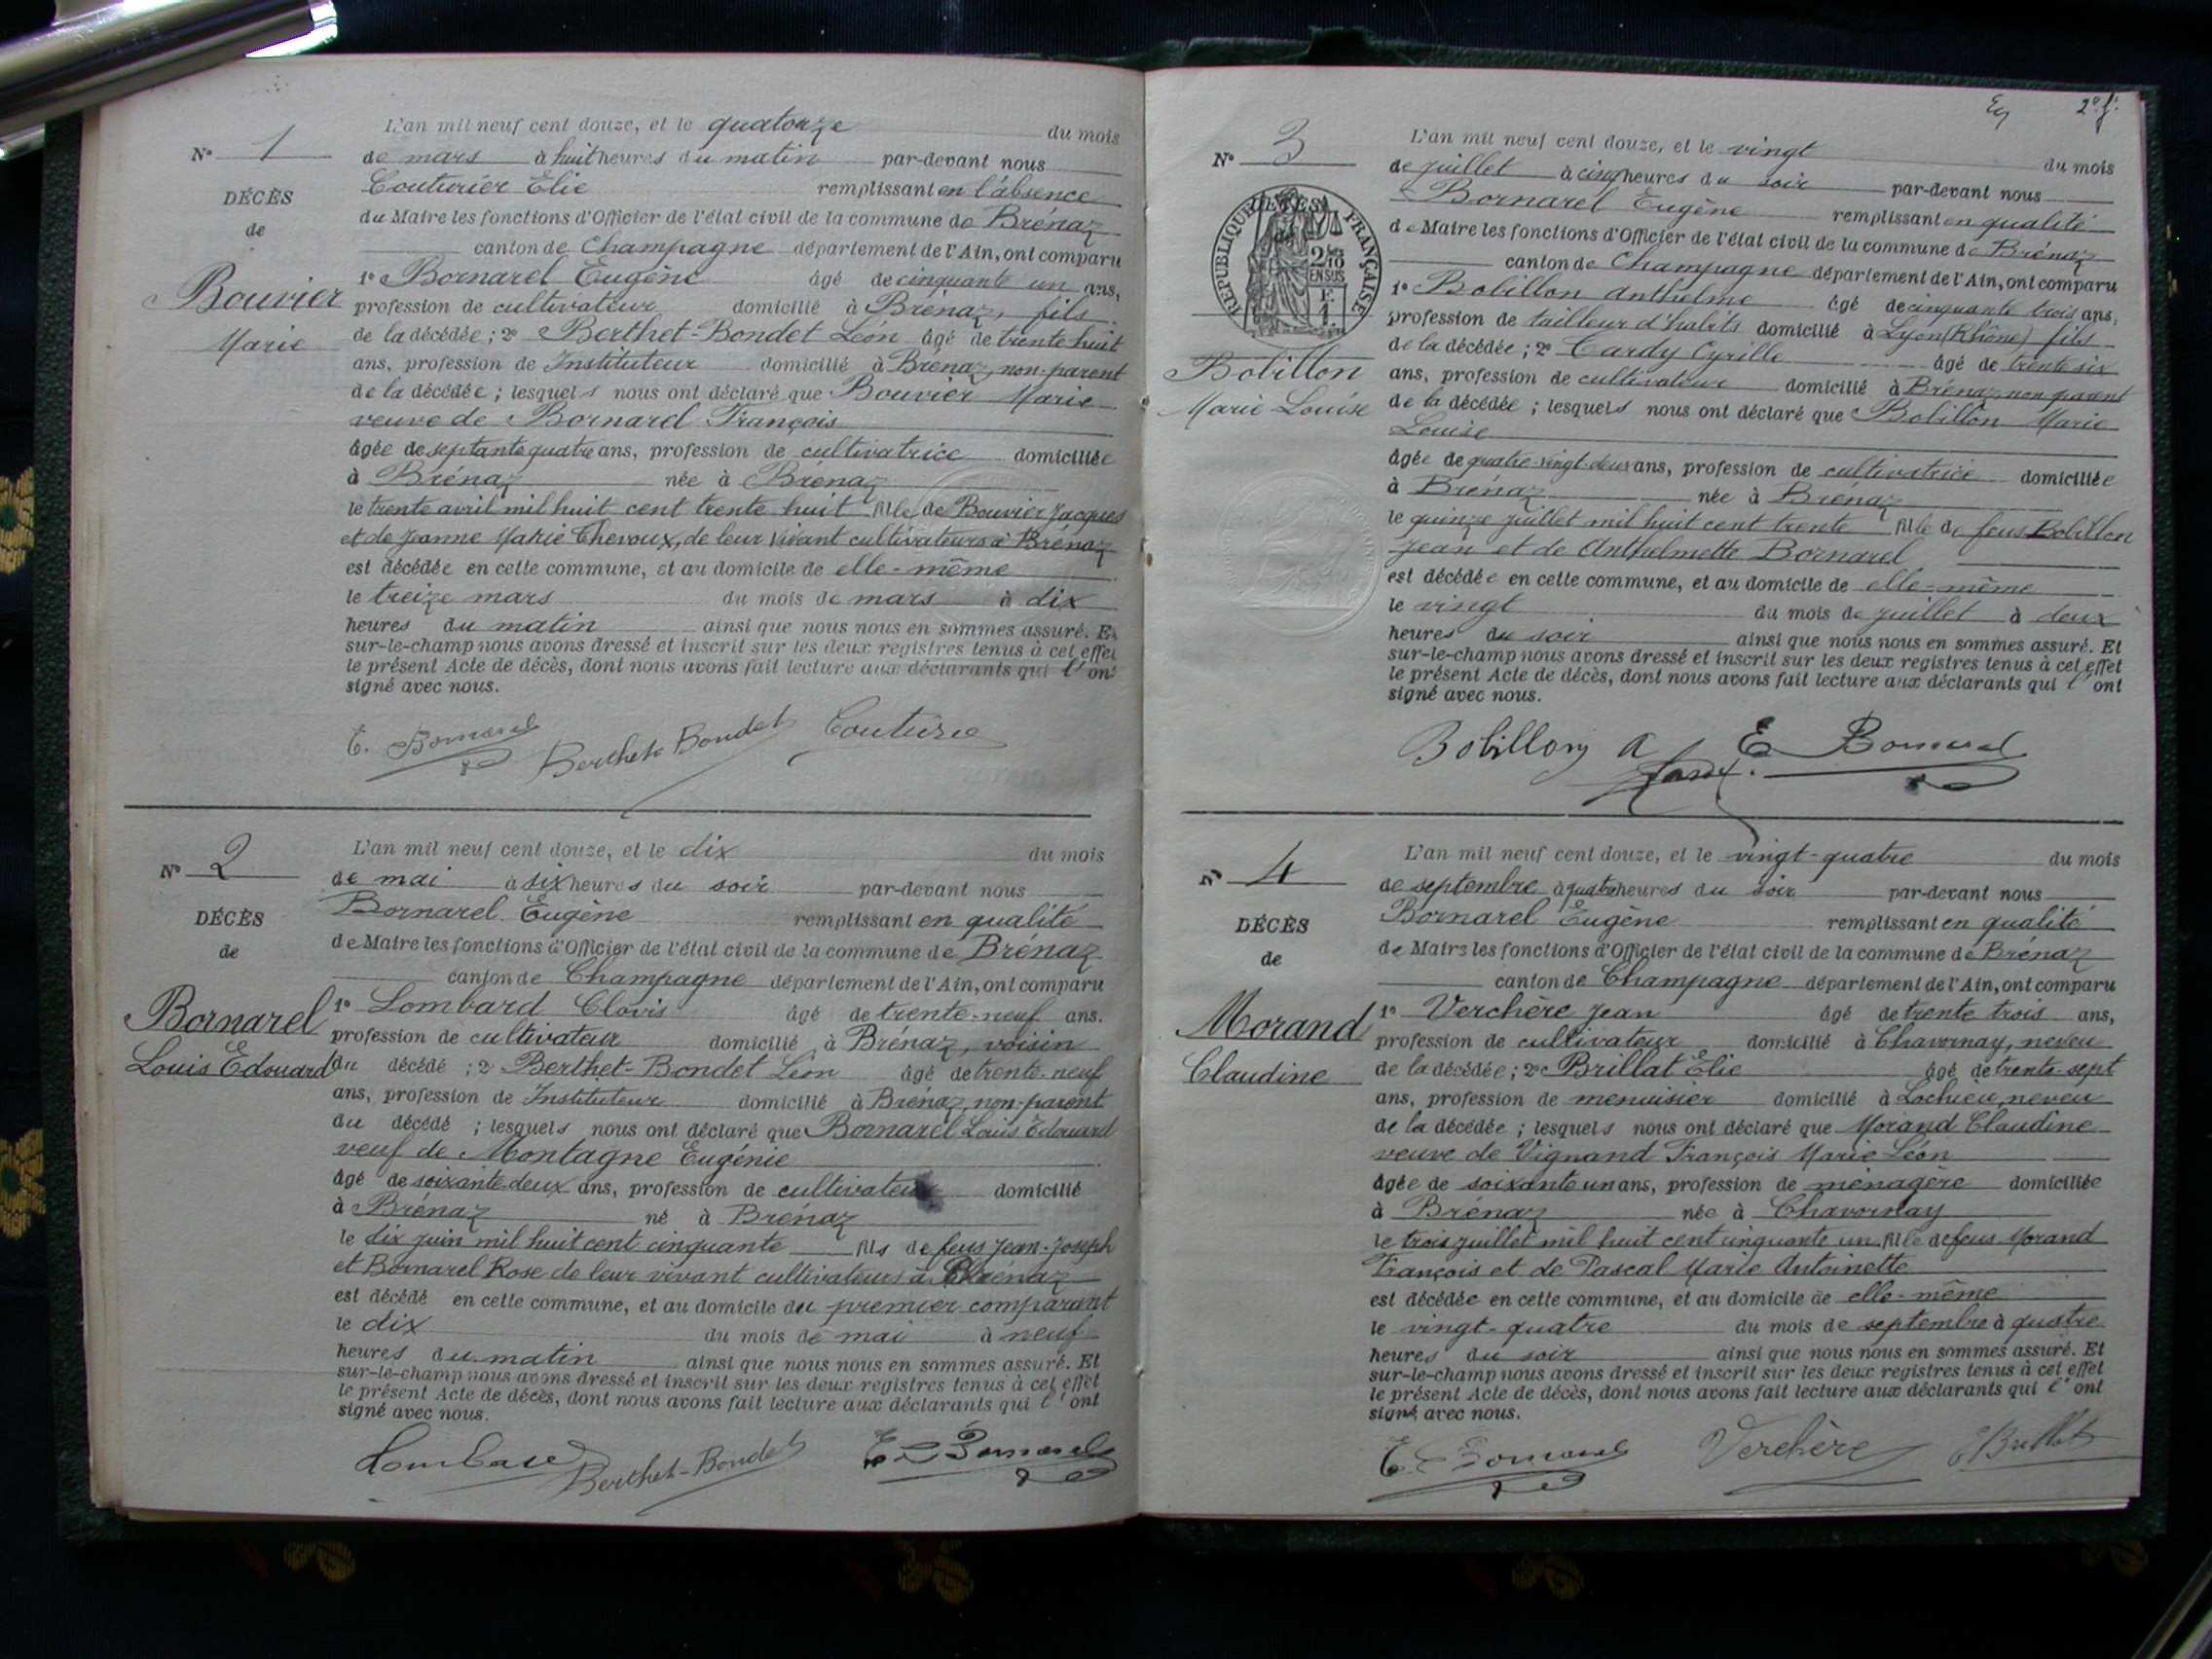 N° 1
DÉCÈS
de
Bouvier
Marie
L'an mil neuf cent douze, et le quatorze du mois
de mars à huit heures du matin par-devant nous
Couturier Elie remplissant en l'absence
du Maire les fonctions d'Officier de l'état civil de la commune de Brénaz
canton de Champagne département de l'Ain, ont comparu
1° Bornarel Eugène âgé de cinquante un ans,
profession de cultivateur domicilié à Brénaz, fils
de la décédée ; 2° Berthet-Bondet Léon âgé de trente huit
ans, profession de Instituteur domicilié à Brénaz, non-parent
de la décédée ; lesquels nous ont déclaré que Bouvier Marie
veuve de Bornarel François
âgée de septante quatre ans, profession de cultivatrice domiciliée
à Brénaz née à Brénaz
le trente avril mil huit cent trente huit fille de Bouvier Jacques
et de Jeanne Marie Chevoux, de leur vivant cultivateurs à Brénaz
est décédée en cette commune, et au domicile de elle-même
le treize mars du mois de mars à dix
heures du matin ainsi que nous nous en sommes assuré. Et
sur-le-champ nous avons dressé et inscrit sur les deux registres tenus à cet effet
le présent Acte de décès, dont nous avons fait lecture aux déclarants qui l'ont
signé avec nous.
E. Bornarel Berthet-Bondet Couturier
N° 2
DÉCÈS
de
Bornarel
Louis Edouard
L'an mil neuf cent douze, et le dix du mois
de mai à six heures du soir par-devant nous
Bornarel Eugène remplissant en qualité
de Maire les fonctions d'Officier de l'état civil de la commune de Brénaz
canton de Champagne département de l'Ain, ont comparu
1° Lombard Clovis âgé de trente-neuf ans.
profession de cultivateur domicilié à Brénaz, voisin
du décédé ; 2° Berthet-Bondet Léon âgé de trente-neuf
ans, profession de Instituteur domicilié à Brénaz, non-parent
du décédé ; lesquels nous ont déclaré que Bornarel Louis Edouard
veuf de Montagne Eugénie
âgé de soixante-deux ans, profession de cultivateur domicilié
à Brénaz né à Brénaz
le dix juin mil huit cent cinquante fils de feus Jean-Joseph
et Bornarel Rose de leur vivant cultivateurs à Brénaz
est décédé en cette commune, et au domicile du premier comparant
le dix du mois de mai à neuf
heures du matin ainsi que nous nous en sommes assuré. Et
sur-le-champ nous avons dressé et inscrit sur les deux registres tenus à cet effet
le présent Acte de décès, dont nous avons fait lecture aux déclarants qui l'ont
signé avec nous.
Lombard Berthet-Bondet E. Bornarel
2e f.
N° 3
REPUBLIQUE FRANÇAISE
2/10 EN SUS
Bobillon
Marie Louise
L'an mil neuf cent douze, et le vingt du mois
de juillet à cinq heures du soir par-devant nous
Bornarel Eugène remplissant en qualité
de Maire les fonctions d'Officier de l'état civil de la commune de Brénaz
canton de Champagne département de l'Ain, ont comparu
1° Bobillon Anthelme âgé de cinquante trois ans,
profession de tailleur d'habits domicilié à Lyon (Rhône) fils
de la décédée ; 2° Cardy Cyrille âgé de trente six
ans, profession de cultivateur domicilié à Brénaz non parent
de la décédée ; lesquels nous ont déclaré que Bobillon Marie
Louise
âgée de quatre-vingt-deux ans, profession de cultivatrice domiciliée
à Brénaz née à Brénaz
le quinze juillet mil huit cent trente fille de feus Bobillon
Jean et de Anthelmette Bornarel
est décédée en cette commune, et au domicile de elle-même
le vingt du mois de juillet à deux
heures du soir ainsi que nous nous en sommes assuré. Et
sur-le-champ nous avons dressé et inscrit sur les deux registres tenus à cet effet
le présent Acte de décès, dont nous avons fait lecture aux déclarants qui l'ont
signé avec nous.
Bobillon A E Bornarel
N° 4
DÉCÈS
de
Morand
Claudine
L'an mil neuf cent douze, et le vingt-quatre du mois
de septembre à quatre heures du soir par-devant nous
Bornarel Eugène remplissant en qualité
de Maire les fonctions d'Officier de l'état civil de la commune de Brénaz
canton de Champagne département de l'Ain, ont comparu
1° Verchère Jean âgé de trente trois ans,
profession de cultivateur domicilié à Chavornay, neveu
de la décédée ; 2° Brillat Elie âgé de trente-sept
ans, profession de menuisier domicilié à Lochieu, neveu
de la décédée ; lesquels nous ont déclaré que Morand Claudine
veuve de Vignand François Marie Léon
âgée de soixante un ans, profession de ménagère domiciliée
à Brénaz née à Chavornay
le trois juillet mil huit cent cinquante un fille de feus Morand
François et de Pascal Marie Antoinette
est décédée en cette commune, et au domicile de elle-même
le vingt-quatre du mois de septembre à quatre
heures du soir ainsi que nous nous en sommes assuré. Et
sur-le-champ nous avons dressé et inscrit sur les deux registres tenus à cet effet
le présent Acte de décès, dont nous avons fait lecture aux déclarants qui l'ont
signé avec nous.
E. Bornarel Verchère E Brillat